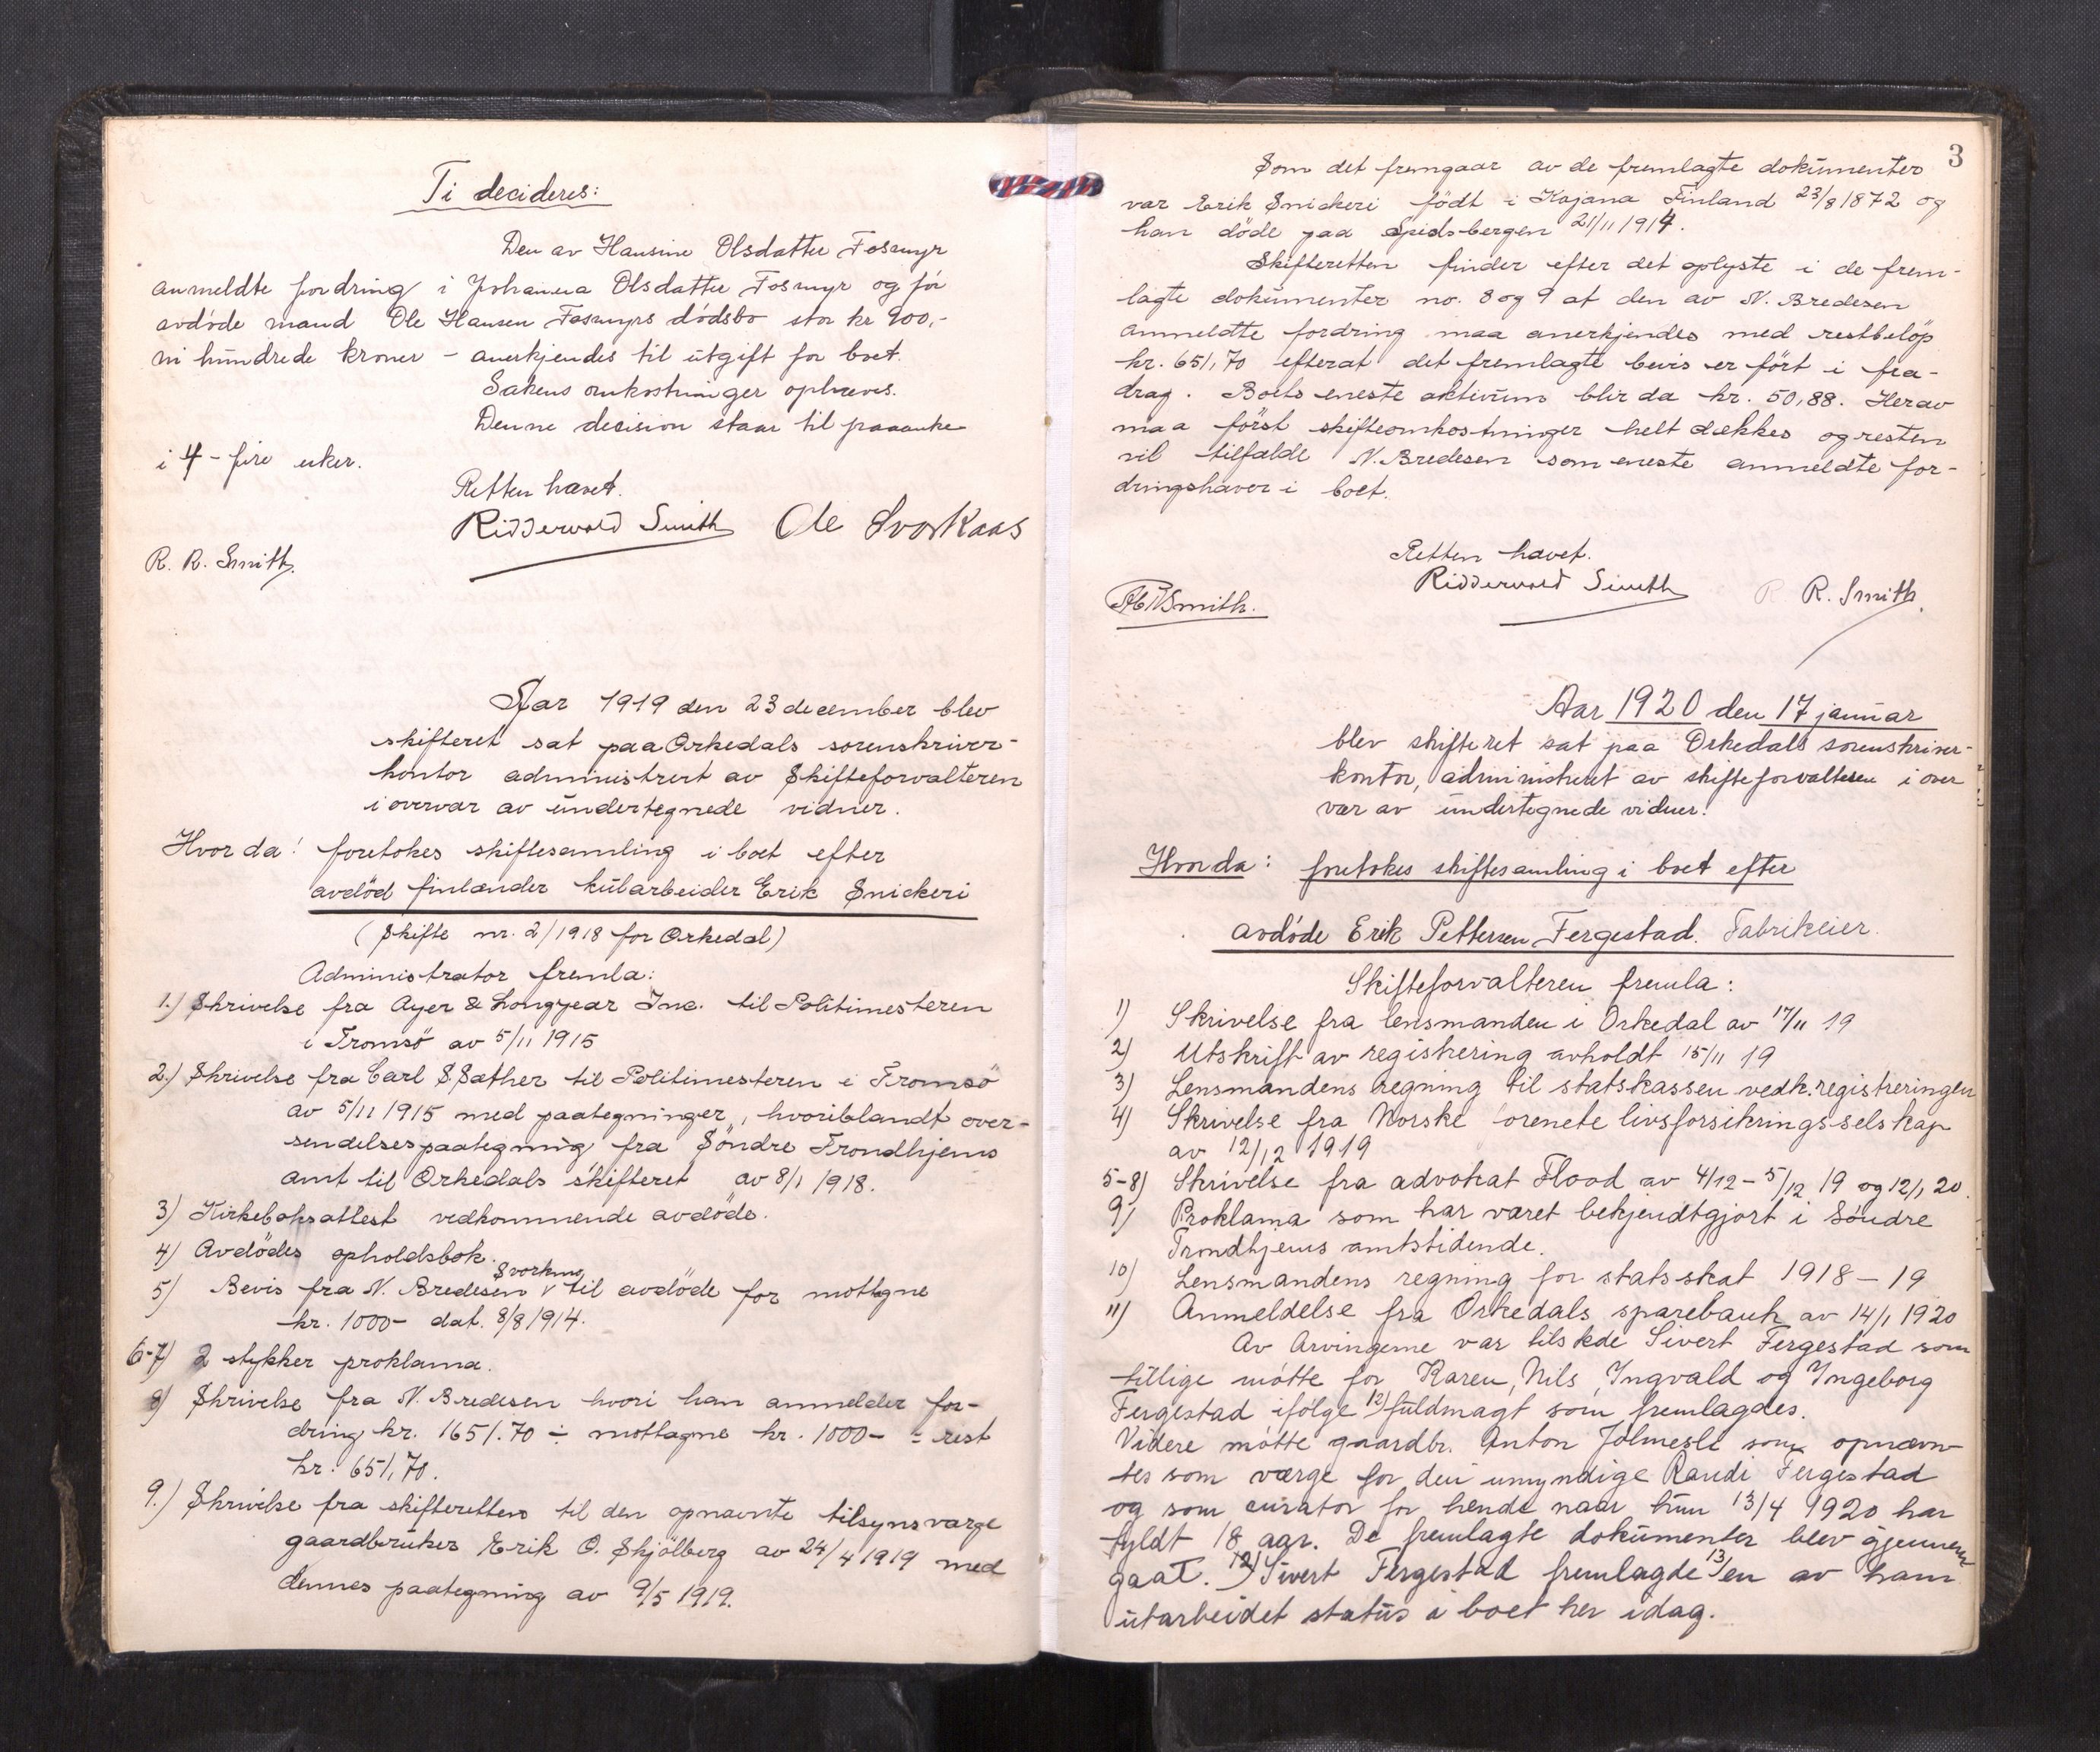 Ti decideres:
Den av Hansine Olsdatter Fosmyr
anmeldte fordring i Johanna Olsdatter Fosmyr og før
avdøde mand Ole Hansen Fosmyrs dødsbo stor kr 900,-
ni hundrede kroner - anerkjendes til utgift for boet.
Sakens omkostninger ophæves.
Denne decision staar til paaanke
i 4 - fire uker.
Retten hævet.
Ridderwold Smith Ole Svorkaas
R. R. Smith.
Aar 1919 den 23 december blev
skifteret sat paa Orkedals sorenskriver-
kontor administrert av Skifteforvalteren
i overvær av undertegnede vidner.
Hvor da: foretokes skiftesamling i boet efter
avdöd finlænder kularbeider Erik Snickeri
(Skifte nr. 2/1918 for Orkedal)
Administrator fremla:
1.) Skrivelse fra Ayer & Longyear Inc. til Politimesteren
i Tromsö av 5/11 1915
2.) Skrivelse fra Carl S. Sæther til Politimesteren i Tromsö
av 5/11 1915 med paategninger, hvoriblandt over-
sendelsespaategning fra Söndre Trondhjems
amt til Orkedals skifteret av 8/1 1918.
3) Kirkeboksattest vedkommende avdöde.
4) Avdödes opholdsbok.
Svorkmo
5) Bevis fra N. Bredesen v til avdöde for mottagne
kr. 1000- dat. 8/8 1914.
6-7) 2 stykker proklama.
8) Skrivelse fra N. Bredesen hvori han anmelder for-
dring kr. 1651.70 ÷ mottagne kr. 1000- = rest
kr. 651,70.
9.) Skrivelse fra skifteretten til den opnævnte tilsynsværge
gaardbruker Erik O. Skjölberg av 24/4 1919 med
dennes paategning av 9/5 1919.
3
Som det fremgaar av de fremlagte dokumenter
var Erik Snickeri födt i Kajana Finland 23/8 1872 og
han döde paa Spidsbergen 21/11 1914.
Skifteretten finder efter det oplyste i de frem-
lagte dokumenter no. 8 og 9 at den av N. Bredesen
anmeldte fordring maa anerkjendes med restbelöp
kr. 651,70 efterat det fremlagte bevis er fört i fra-
drag. Boets eneste aktivum blir da kr. 50,88. Herav
maa först skifteomkostninger helt dækkes og resten
vil tilfalde N. Bredesen som eneste anmeldte for-
dringshaver i boet.
Retten hævet.
Ridderwold Smith R R. Smith.
Smith.
Aar 1920 den 17 januar
blev skifteret sat paa Orkedals sorenskriver-
kontor, administrert av skifteforvalteren i over
vær av undertegnede vidner.
Hvor da: foretokes skiftesamling i boet efter
avdøde Erik Pettersen Fergestad. Fabrikeier.
Skifteforvalteren fremla:
1) Skrivelse fra lensmanden i Orkedal av 17/11 19
2) Utskrift av registrering avholdt 15/11 19
3) Lensmandens regning til statskassen vedk. registreringen
4) Skrivelse fra Norske forenete livsforsikringsselskap
av 12/12 1919
5-8) Skrivelse fra advokat Flood av 4/12 - 5/12 19 og 12/1 20.
9) Proklama som har været bekjendtgjort i Søndre
Trondhjems amtstidende.
10) Lensmandens regning for statsskat 1918-19
11) Anmeldelse fra Orkedals sparebank av 14/1 1920
Av Arvingerne var tilstede Sivert Fergestad som
tillige møtte for Karen, Nils, Ingvald og Ingeborg
Fergestad ifølge 12) fuldmagt som fremlagdes.
Videre møtte gaardbr. Anton Jolmesli som opnævn-
tes som værge for den umyndige Randi Fergestad
og som curator for hende naar hun 13/4 1920 har
fyldt 18 aar. De fremlagte dokumenter blev gjennem
gaat. 12) Sivert Fergestad fremlagde 13) en av ham
utarbeidet status i boet her idag.